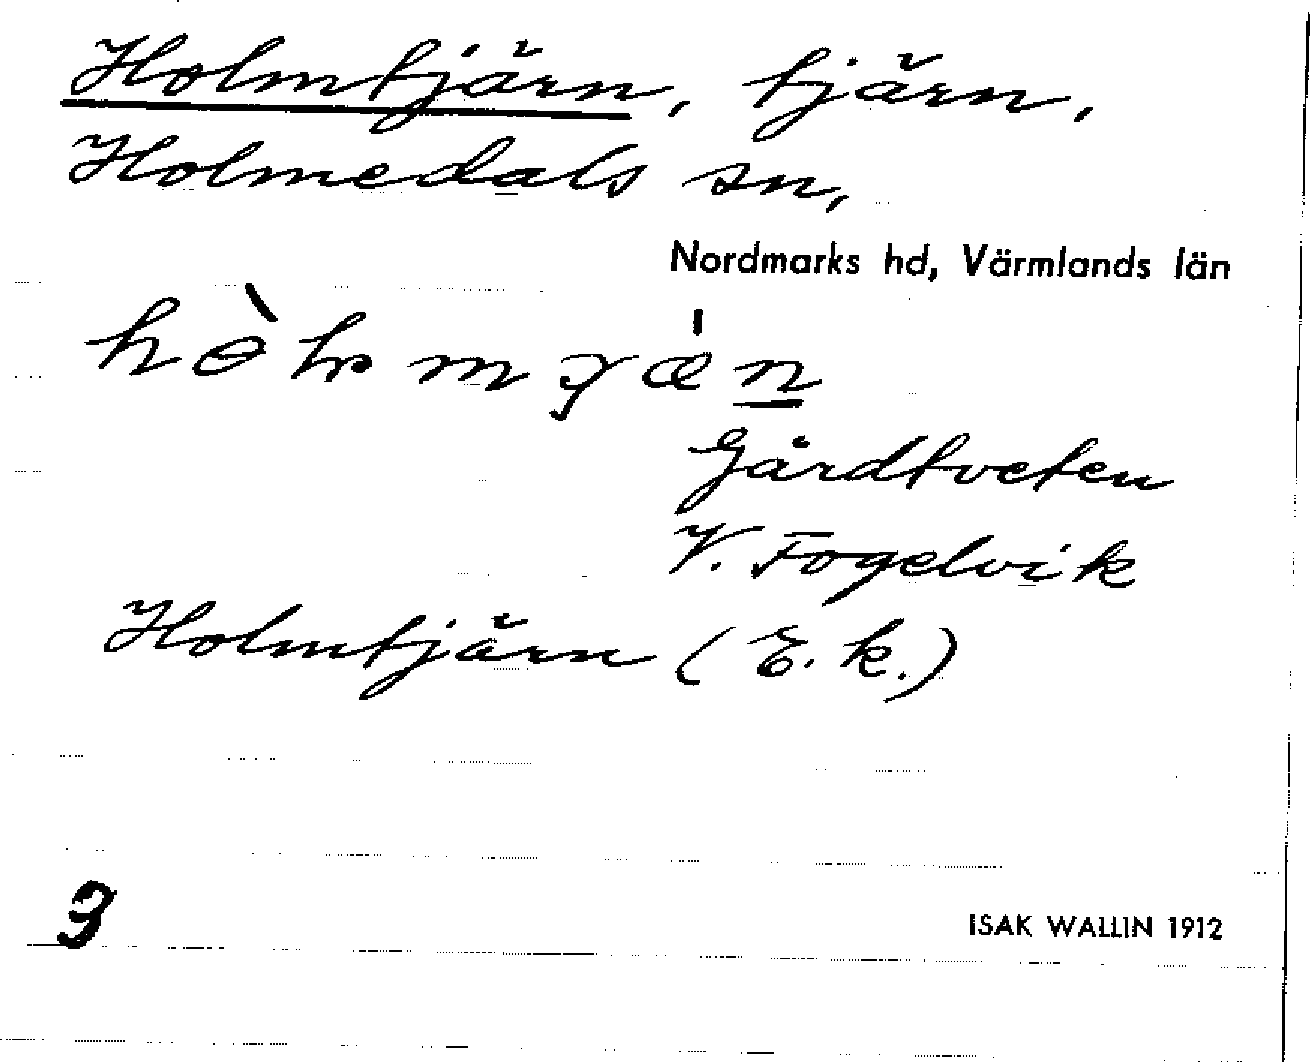 Holmtjärn, tjärn,
Holmedals sn,
Nordmarks hd, Värmlands län
Gårdtveten
V. Fogelvik
Holmtjärn (E. k.)
3
ISAK WALLIN 1912